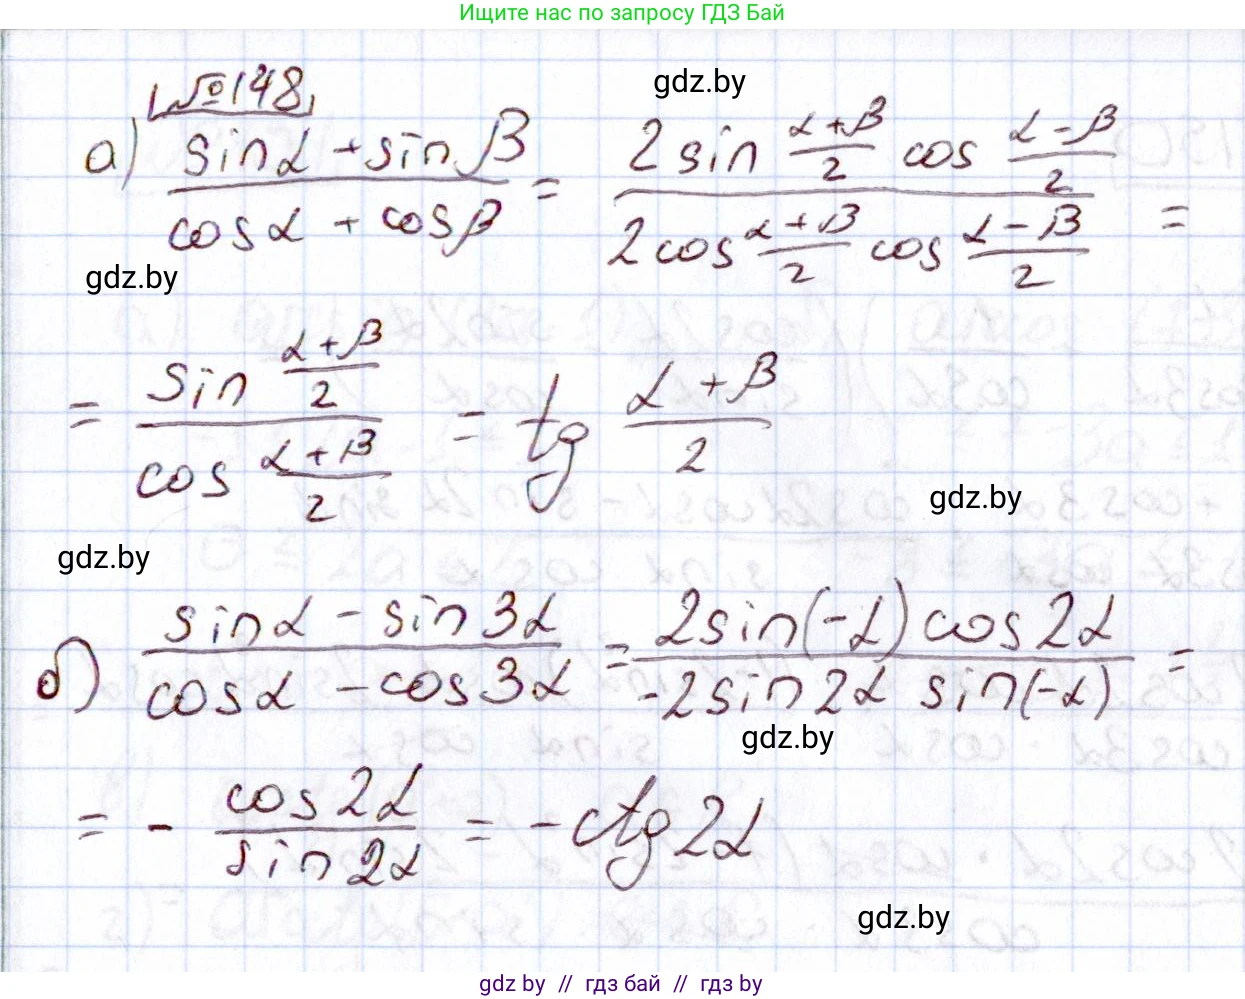 Ищите нас по запросу ГДЗ Бай
№148
gdz.by
а) (sinα + sinβ)/(cosα + cosβ) = (2sin (α+β)/2 cos (α-β)/2)/(2cos (α+β)/2 cos (α-β)/2) =
gdz.by
= (sin (α+β)/2)/(cos (α+β)/2) = tg (α+β)/2
gdz.by
gdz.by
б) (sinα - sin3α)/(cosα - cos3α) = (2sin(-α)cos2α)/(-2sin2α sin(-α)) =
gdz.by
= - cos2α/sin2α = -ctg2α
gdz.by
gdz.by // гдз бай // гдз by